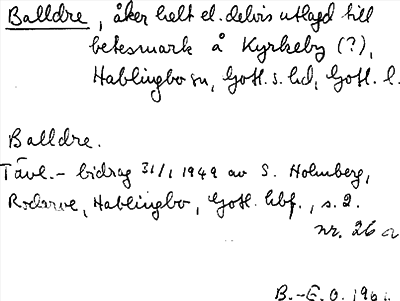 Balldre, åker helt el. delvis utlagd till
betesmark å Kyrkeby (?),
Hablingbo sn, Gotl. s. hd, Gotl. l.
Balldre.
Tävl.- bidrag 31/1 1949 av S. Holmberg,
Rodarve, Hablingbo, Gotl. hbf., s. 2.
nr. 26 a
B.-E. O.